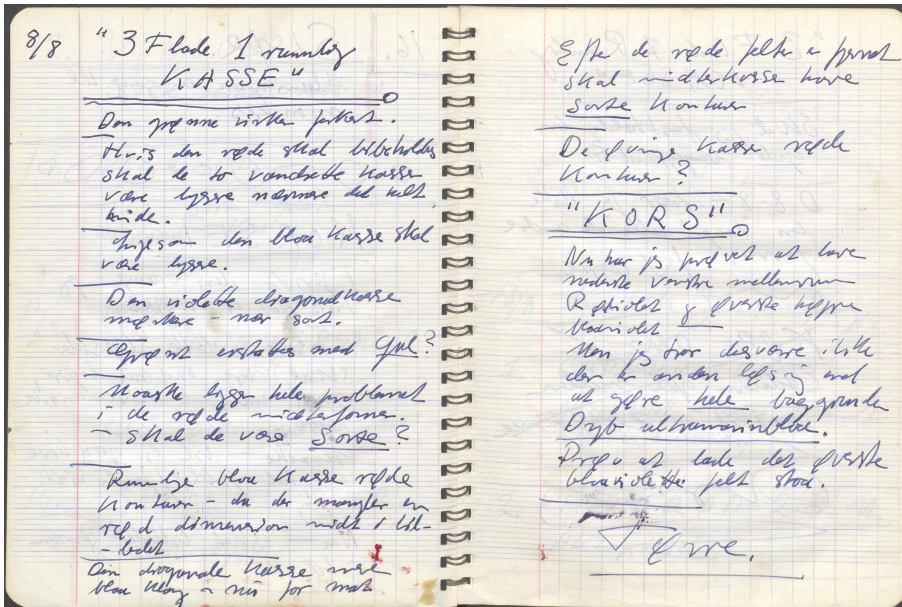 8/8
"3 Flade 1 rumlig
KASSE"
Den grønne virker forkert.
Hvis den røde skal bibeholdes
skal de to vandrette Kasser
være lysere nærmere det helt
hvide.
Ligesom den blaa Kasse skal
være lysere.
Den violette diagonalkasse
mørkere - nær sort.
Grønt erstattes med Gul?
Maaske ligger hele problemet
i de røde midterformer.
- skal de være Sorte?
Rumlige blaa Kasse røde
Konturer - da der mangler en
rød dimension midt i bil-
- ledet
Den diagonale Kasse mere
blaa Klang - nu for mat
Efter de røde felter er fjernet
skal midterkasse have
sorte Konturer
De øvrige Kasser røde
Konturer?
"KORS"
Nu har jeg prøvet at lave
nederste venstre mellemrum
Rødviolet og øverste højre
Men jeg tror desværre ikke
der er anden løsning end
at gøre hele baggrunden
Dyb ultramarinblaa.
Prøv at lade det øverste
blaaviolette felt staa.
Øvre.